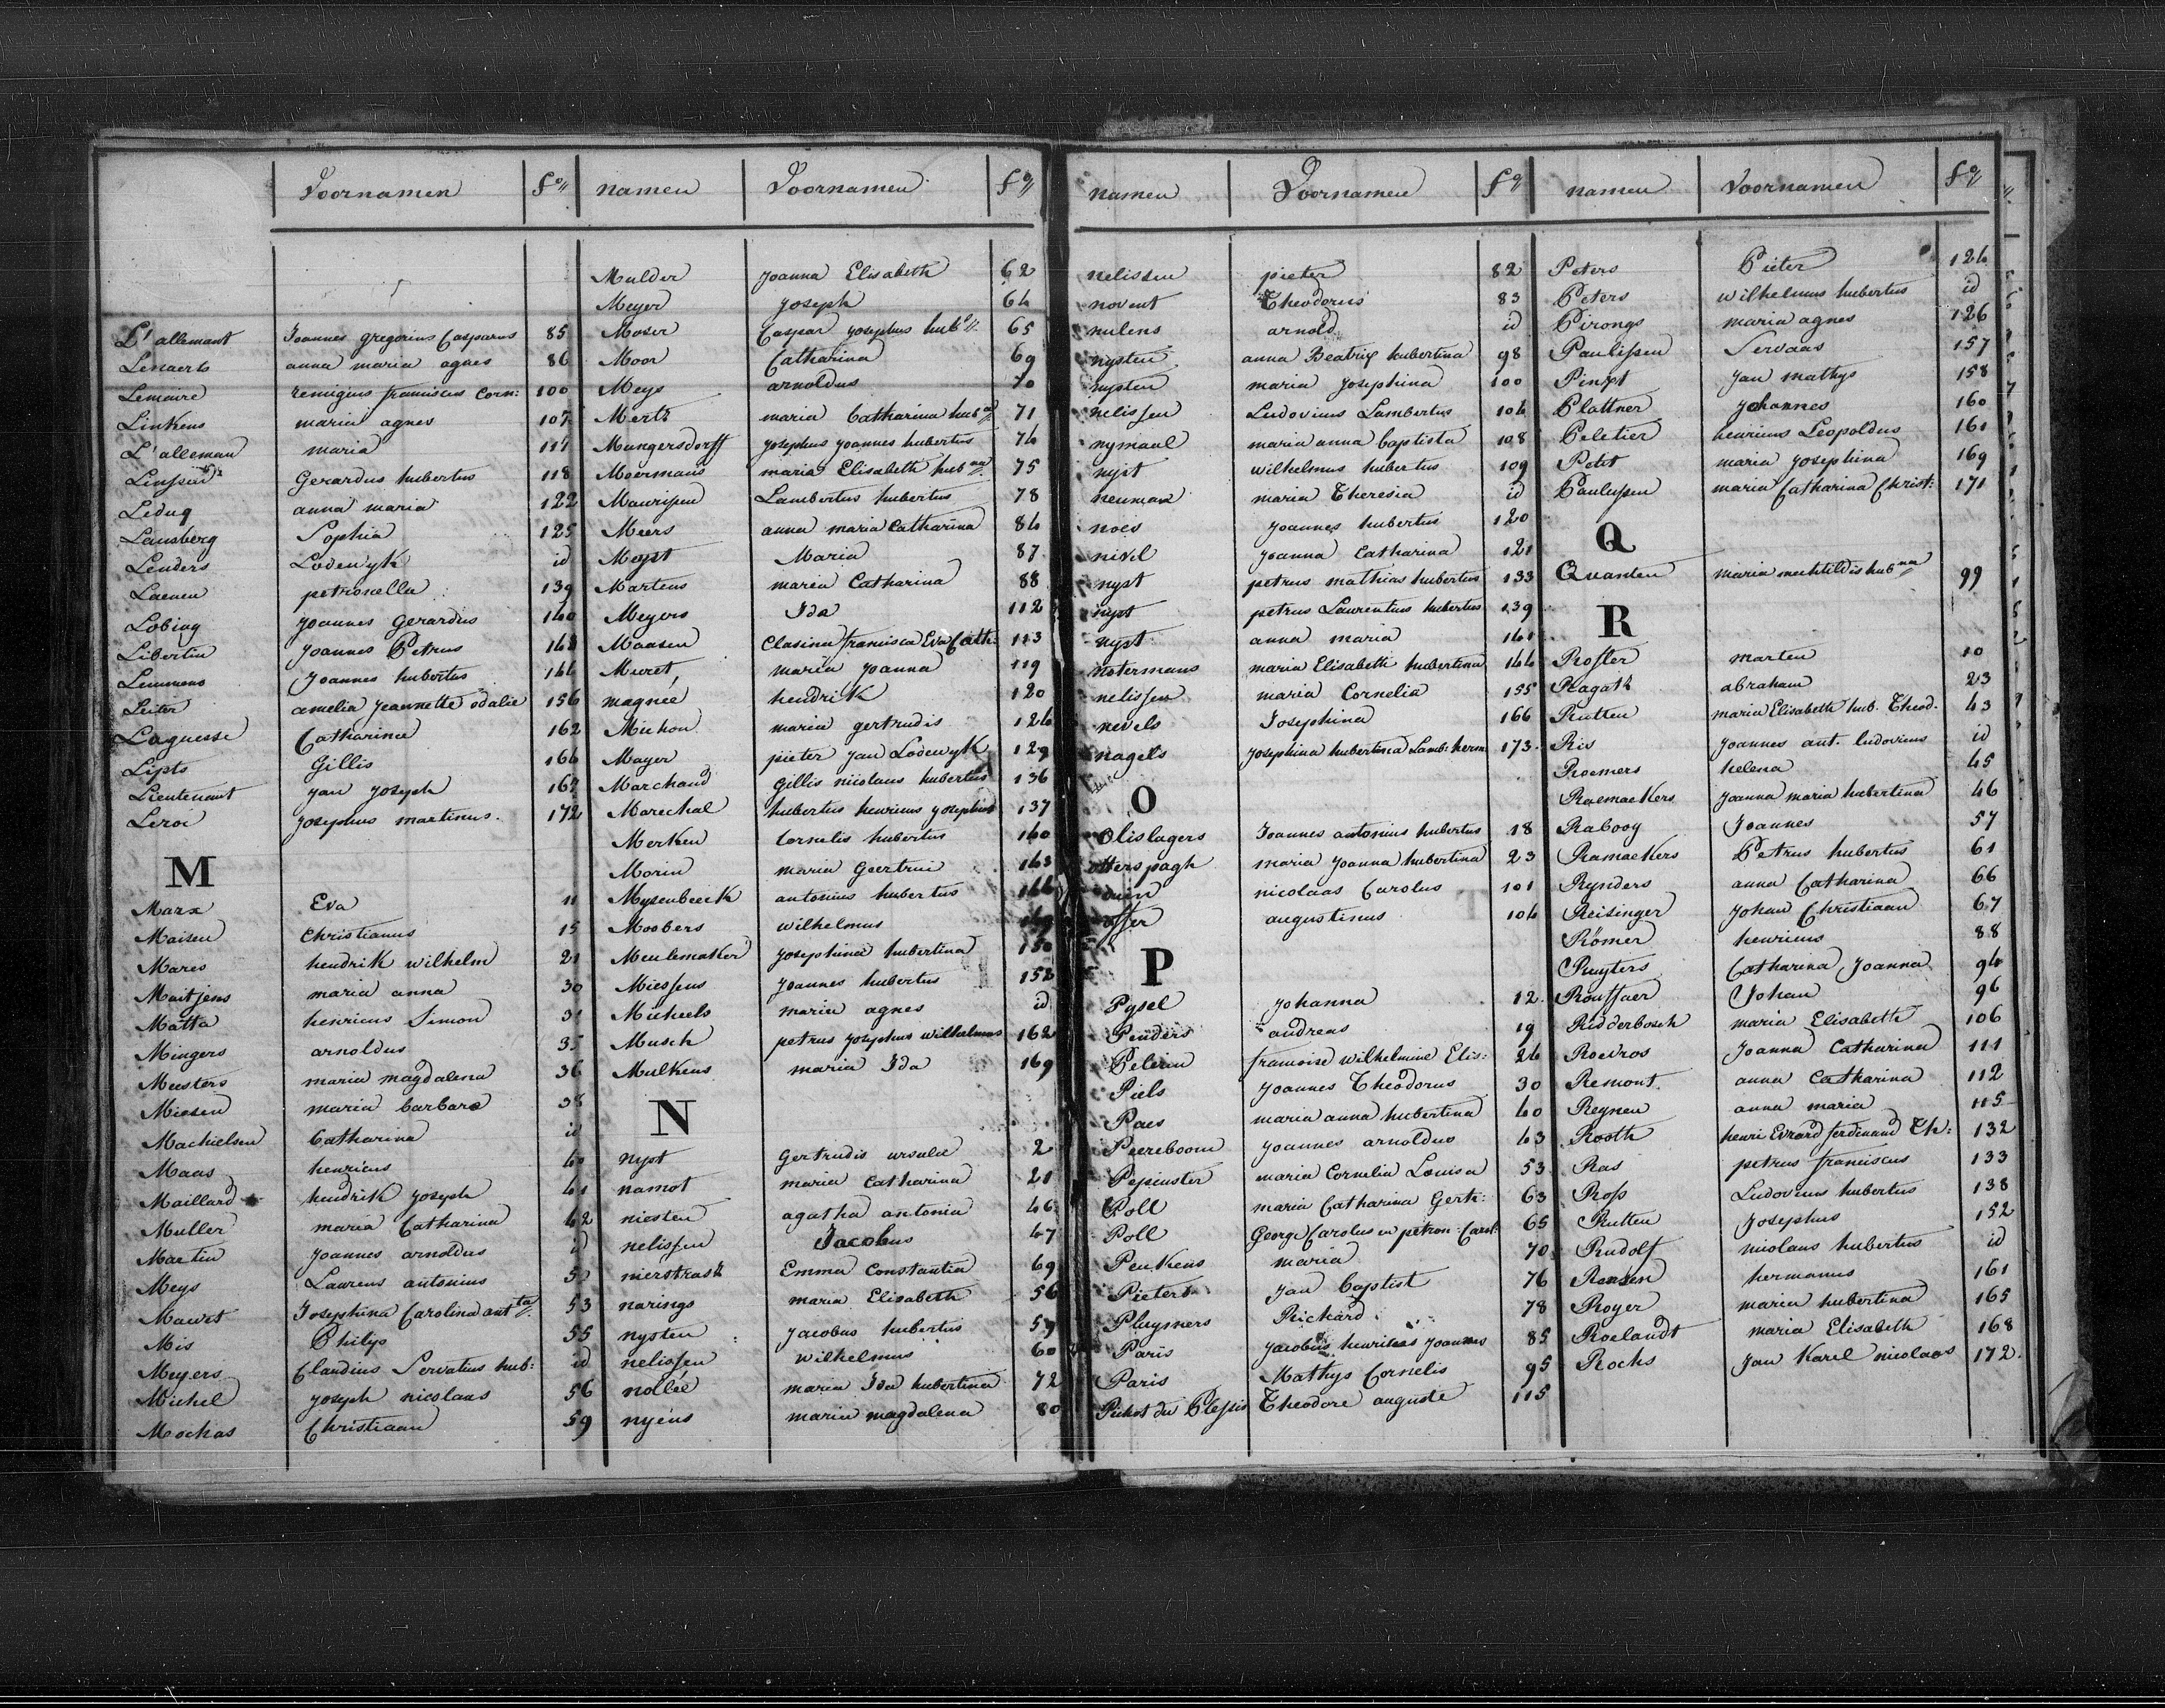 Voornamen fo
L'allemant Joannes gregorius Casparus 85
Lenaerts anna maria agnes 86
Lemaire remigius franciscus Corn: 100
Linkens maria agnes 107
L'alleman maria 117
Gerardus hubertus 118
Leduq anna maria 122
Lansberg Sophia 125
Lenders Lodewyk id
Laenen petronella 139
Lobing Joannes Gerardus 140
Libertin Joannes Petrus
Lemmens Joannes hubertus 144
Leiter amelia Jeannette odalie 156
Laguesse Catharina 162
Lipts Gillis 164
Lieutenant Jan Joseph 167
Leroi Josephus martinus. 172
M
Marx Eva 11
Maisen Christianus 15
Mares hendrik wilhelm 21
Maitjens maria anna 30
Matta henricus Simon 31
Mingers arnoldus 35
Meesters maria magdalena 36
Miesen maria barbara 38
Machielsen Catharina id
Maas henricus 40
Maillard hendrik Joseph 41
Muller maria Catharina 42
Martin Joannes arnoldus id
Meys Laurens antonius
Mawet Josephina Carolina antta 53
Mis Philip 55
Meyers Claudius Servatius hub: id
Michel Joseph nicolaas 56
Mochas Christiaan 59
namen Voornamen fo
Mulder Joanna Elisabeth 62
Meyer Joseph 64
Moser Caspar Josephus hubs 65
Moor Catharina 69
Meys arnoldus 70
Mertz maria Catharina hubna 71
Mungersdorff Josephus Joannes hubertus 74
Moermans maria Elisabeth hubna 75
Maurissen Lambertus hubertus 78
Meers anna maria Catharina 84
Meyst Maria 87
Martens maria Catharina 88
Meyers Ida 112
Maasen Clasina francisca Eva Cath: 113
Muret maria Joanna 119
magnée hendrik 120
Michon maria gertrudis 124
Mayer pieter Jan Lodewyk 129
Marchand Gillis nicolaus hubertus 136
Marechal hubertus henricus Josephus 137
Merken Cornelis hubertus 140
Morin maria Geertrui 143
Mysenbeeck antonius hubertus
Moobers wilhelmus
Meulemaker Josephina hubertina 150
Miessens Joannes hubertus 152
Micheels maria agnes id
Musch petrus Josephus wilhelmus 162
Mulkens maria Ida 169
N
nyst Gertrudis ursula 2
namot maria Catharina 21
niesten agatha antonia 46
nelissen Jacobus 47
nierstrasz Emma Constantia 69
narings maria Elisabeth 56
nysten Jacobus hubertus 59
nelissen wilhelmus 60
nollée maria Ida hubertina 72
nyéns maria magdalena 80
namen Voornamen fo
nelissen pieter 82
novent Theodorus 83
nulens arnold id
nysten anna Beatrix hubertina 98
nysten maria Josephina 100
nelissen Ludovicus Lambertus 104
nymaal maria anna baptista 108
nyst wilhelmus hubertus 109
neuman maria Theresia id
noes Joannes hubertus 120
nivel Joanna Catharina 121
nyst petrus mathias hubertus 133
nyst petrus Laurentius hubertus 139
nyst anna maria 141
notermans maria Elisabeth hubertina 144
nelissen maria Cornelia 155
nevels Josephina 166
nagels Josephina hubertina Lamb: herm 173
O
Olislagers Joannes antonius hubertus 18
otterspagh maria Joanna hubertina 23
nicolaas Carolus 101
offer augustinus 104
P
Pysel Johanna 12
Penders andreas 19
Pelerin francoise wilhelmine Elis: 24
Piels Joannes Theodorus 30
Paes maria anna hubertina 40
Peereboom Joannes arnoldus 43
Pepinster maria Cornelia Louisa 53
Poll maria Catharina Gert: 63
Poll George Carolus en petron: Carol: 65
Peukens maria 70
Pieters Jan Baptist 76
Pluymers Richard 78
Paris Jacobus henricus Joannes 85
Paris Mathys Cornelis 95
Pichot du Plessis Theodore auguste 115
namen Voornamen fo
Peters Pieter 124
Peters wilhelmus hubertus id
Pirongs maria agnes 126
Paulissen Servaas 157
Pinxt Jan mathys 158
Plattner Johannes 160
Peletier henricus Leopoldus 161
Petit maria Josephina 169
Paulussen maria Catharina Christ: 171
Q
Quanten maria mechtildis hubna 99
R
Rosler marten 10
Ragatz abraham 23
Rutten maria Elisabeth hub. Theod. 43
Ris Joannes ant. ludovicus id
Roemers helena 45
Raemaekers Joanna maria hubertina 46
Rabooy Joannes 57
Ramaekers Petrus hubertus 61
Rynders anna Catharina 66
Reisinger Johan Christiaan 67
Römer henricus 88
Ruyters Catharina Joanna 94
Rouffaer Johan 96
Ridderbosch maria Elisabeth 106
Roevros Joanna Catharina 111
Remont anna Catharina 112
Reynen anna maria 115
Rooth henri Evrard ferdinand Th: 132
Ras petrus franciscus 133
Ross Ludovicus hubertus 138
Rutten Josephus 152
Rudolf nicolaus hubertus id
Rensen hermanus 161
Royer maria hubertina 165
Roelandt maria Elisabeth 168
Rochs Jan Karel nicolaas 172